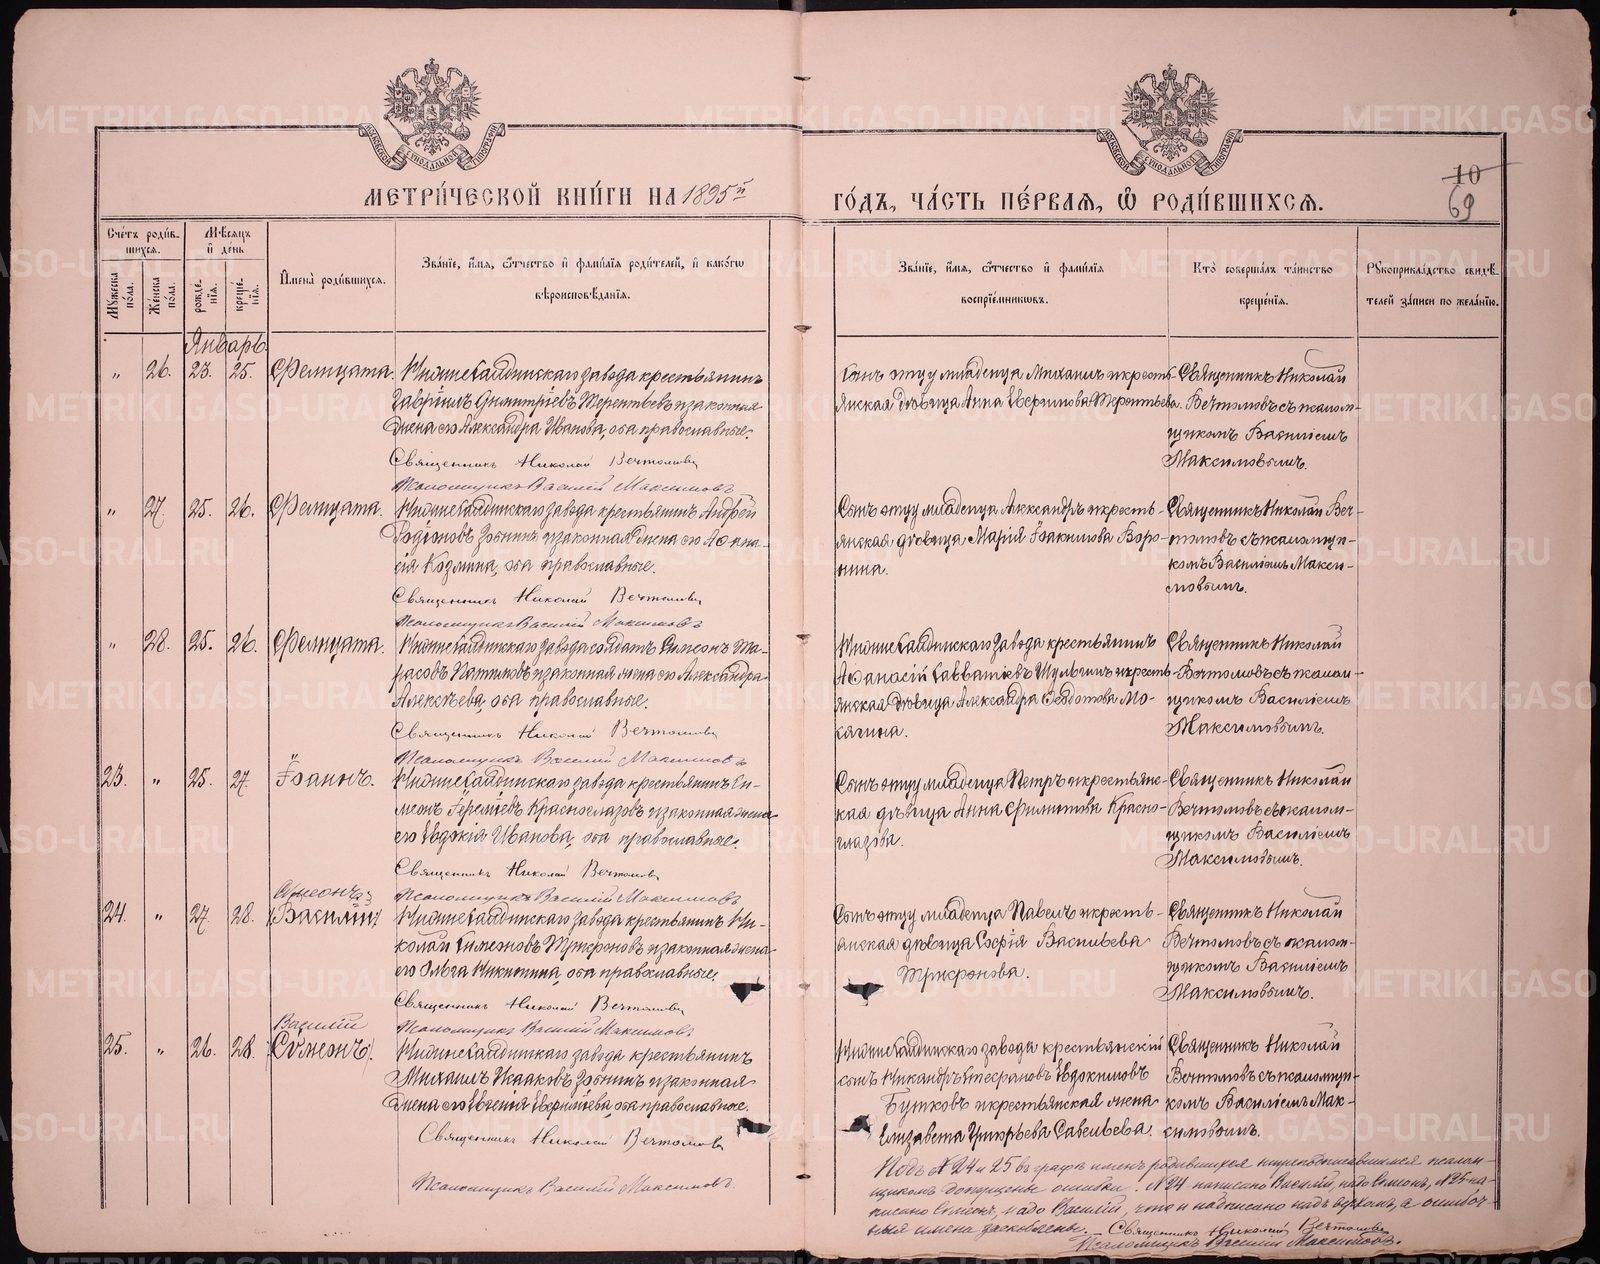 МЕТРИ́ЧЕСКОЙ КНИ́ГИ НА 1895й ГО́ДЪ, ЧА́СТЬ ПЕ́РВАЯ, Ѽ РОДИ́ВШИХСЯ.
10
69
Сче́тъ роди́в-
шихся.
Му́жеска по́ла.
Же́нска по́ла.
Мѣ́сяцъ и́ де́нь
рожде́нїя.
креще́нїя.
И҆мена̀ роди́вшихся.
Зва́нїе, и҆́мя, ѻ҆́тчество и҆ фамѝлїя роди́телей, и҆ како́гѡ
вѣроисповѣ́данїя.
Зва́нїе, и҆́мя, ѻ҆́тчество и҆ фамѝлїя
воспрїе́мниковъ.
Кто̀ соверша́лъ та́инство
креще́нїя.
Рꙋкоприкла́дство свидѣ́-
телей за́писи по жела́нїю.
Январь.
„ 26. 23. 25. Фелицата.
Нижнесалдинскаго завода крестьянинъ
Гавріилъ Димитріевъ Терентьевъ и законная
жена его Александра Иванова, оба православные.
Священникъ Николай Вечтомовъ
Псаломщикъ Василій Максимовъ
Сынъ отцу младенца Михаилъ и кресть-
янская дѣвица Анна Терентьева.
Священникъ Николай
Вечтомовъ съ псалом-
щикомъ Василіемъ
Максимовымъ.
„ 27. 25. 26. Фелицата.
Нижнесалдинскаго завода крестьянинъ Андрей
Родіоновъ Зорнинъ и законная жена его Афана-
сія Козмина, оба православные.
Священникъ Николай Вечтомовъ
Псаломщикъ Василій Максимовъ
Сынъ отцу младенца Александръ и кресть-
янская дѣвица Марія Іоакимова Воро-
нина.
Священникъ Николай Веч-
томовъ съ псаломщи-
комъ Василіемъ Макси-
мовымъ.
„ 28. 25. 26. Фелицата.
Нижнесалдинскаго завода солдатъ Симеонъ Та-
расовъ и законная жена его Александра
Алексѣева, оба православные.
Священникъ Николай Вечтомовъ
Псаломщикъ Василій Максимовъ
Нижнесалдинскаго завода крестьянинъ
Афанасій Савватіевъ Шульгинъ и кресть-
янская дѣвица Александра Ѳеодотова Мо-
кягина.
Священникъ Николай
Вечтомовъ съ псалом-
щикомъ Василіемъ
Максимовымъ.
23. „ 25. 27. Іоаннъ.
Нижнесалдинскаго завода крестьянинъ Си-
меонъ Іереміевъ Красноглазовъ и законная жена
его Евдокія Иванова, оба православные.
Священникъ Николай Вечтомовъ
Псаломщикъ Василій Максимовъ
Сынъ отцу младенца Петръ и крестьянс-
кая дѣвица Анна Филиппова Красно-
глазова.
Священникъ Николай
Вечтомовъ съ псалом-
щикомъ Василіемъ
Максимовымъ.
Сѵмеонъ
24. „ 27. 28. (Василій)
Нижнесалдинскаго завода крестьянинъ Ни-
колай Симеоновъ Трифоновъ и законная жена
его Ольга Никитина, оба православные.
Священникъ Николай Вечтомовъ
Псаломщикъ Василій Максимовъ
Сынъ отцу младенца Павелъ и кресть-
янская дѣвица Софія Васильева
Трифонова.
Священникъ Николай
Вечтомовъ съ псалом-
щикомъ Василіемъ
Максимовымъ.
Василій
25. „ 26. 28. (Сѵмеонъ)
Нижнесалдинскаго завода крестьянинъ
Михаилъ Исааковъ Зорнинъ и законная
жена его Евгенія, оба православные.
Священникъ Николай Вечтомовъ
Псаломщикъ Василій Максимовъ.
Нижнесалдинскаго завода крестьянскій
сынъ Никандръ Стефановъ Евдокимовъ
Бутковъ и крестьянская жена
Елизавета Григорьева Савельева.
Священникъ Николай
Вечтомовъ съ псаломщи-
комъ Василіемъ Мак-
симовымъ.
Подъ №24 и 25 въ графѣ именъ родившихся нижеподписавшимся псалом-
щикомъ допущены ошибки. №24 написано Василій, надо Симеонъ, №25 на-
писано Симеонъ, надо Василій, что и надписано надъ верхомъ, а ошибоч-
ныя имена заскоблены. Священникъ Николай Вечтомовъ
Псаломщикъ Василій Максимовъ.
METRIKI.GASO-URAL.RU